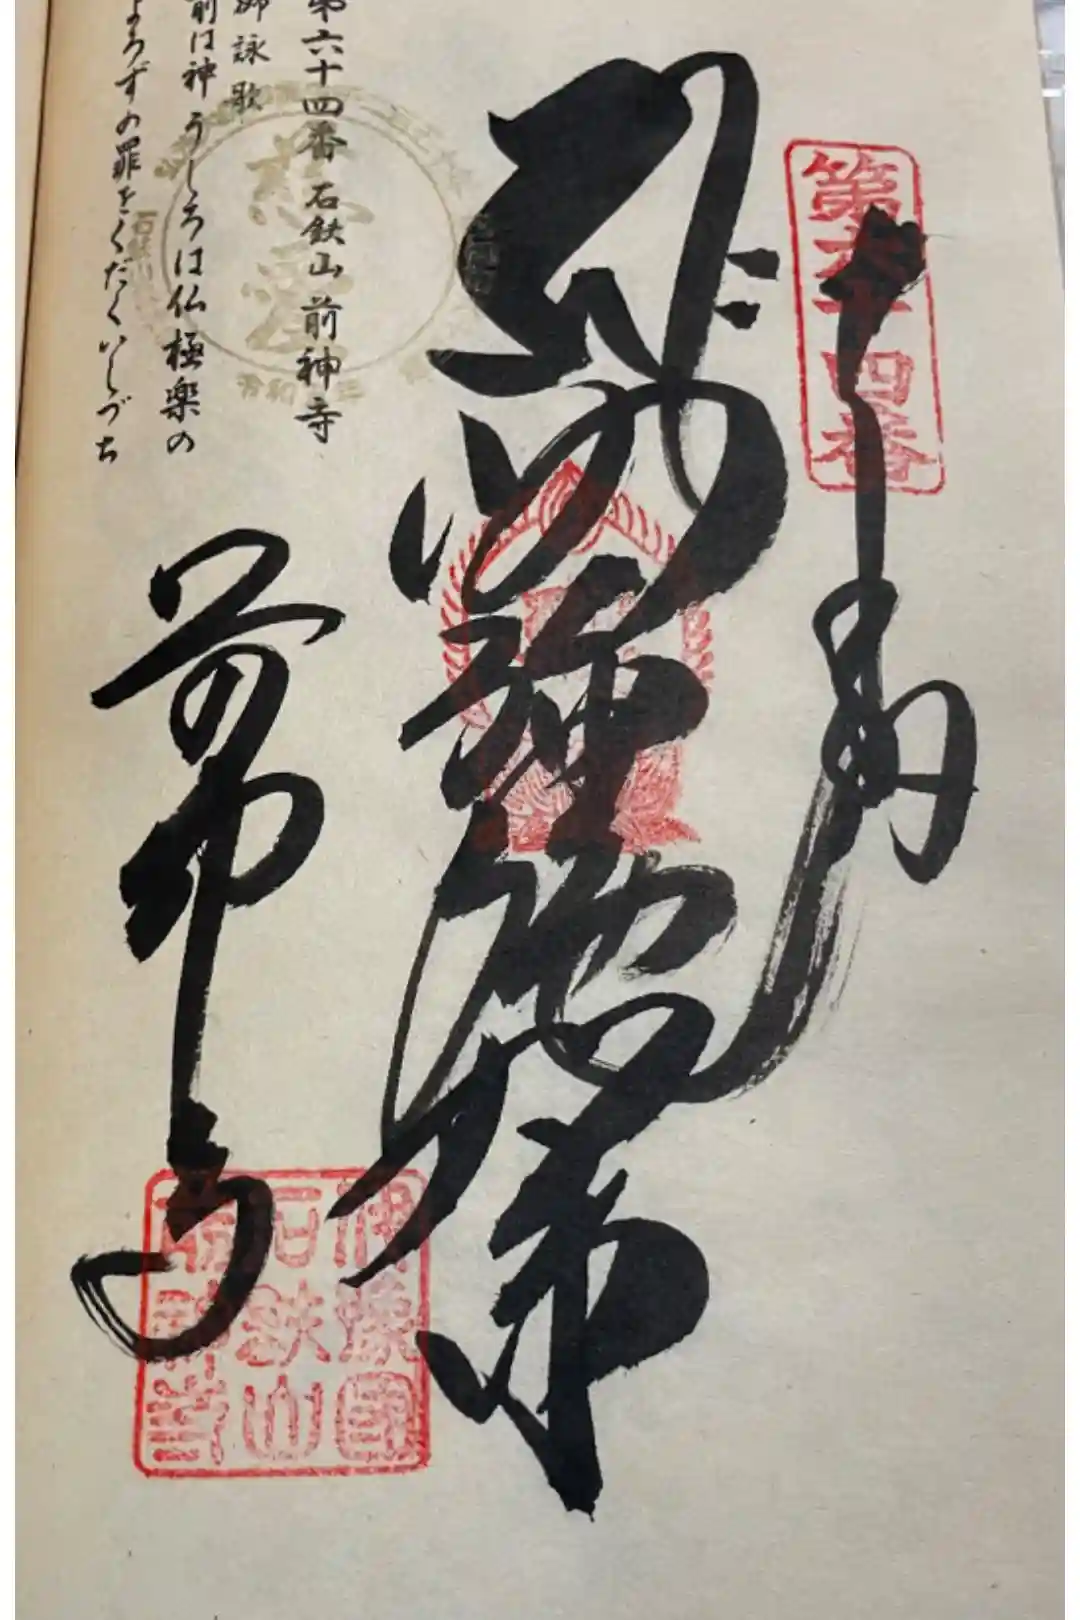 第六十四番
奉納
阿弥陀如来
第六十四番 石鉄山 前神寺
御詠歌
前は神うしろは仏極楽の
よろずの罪をくだくいしづち
前神寺
伊豫国
石鉄山
前神寺